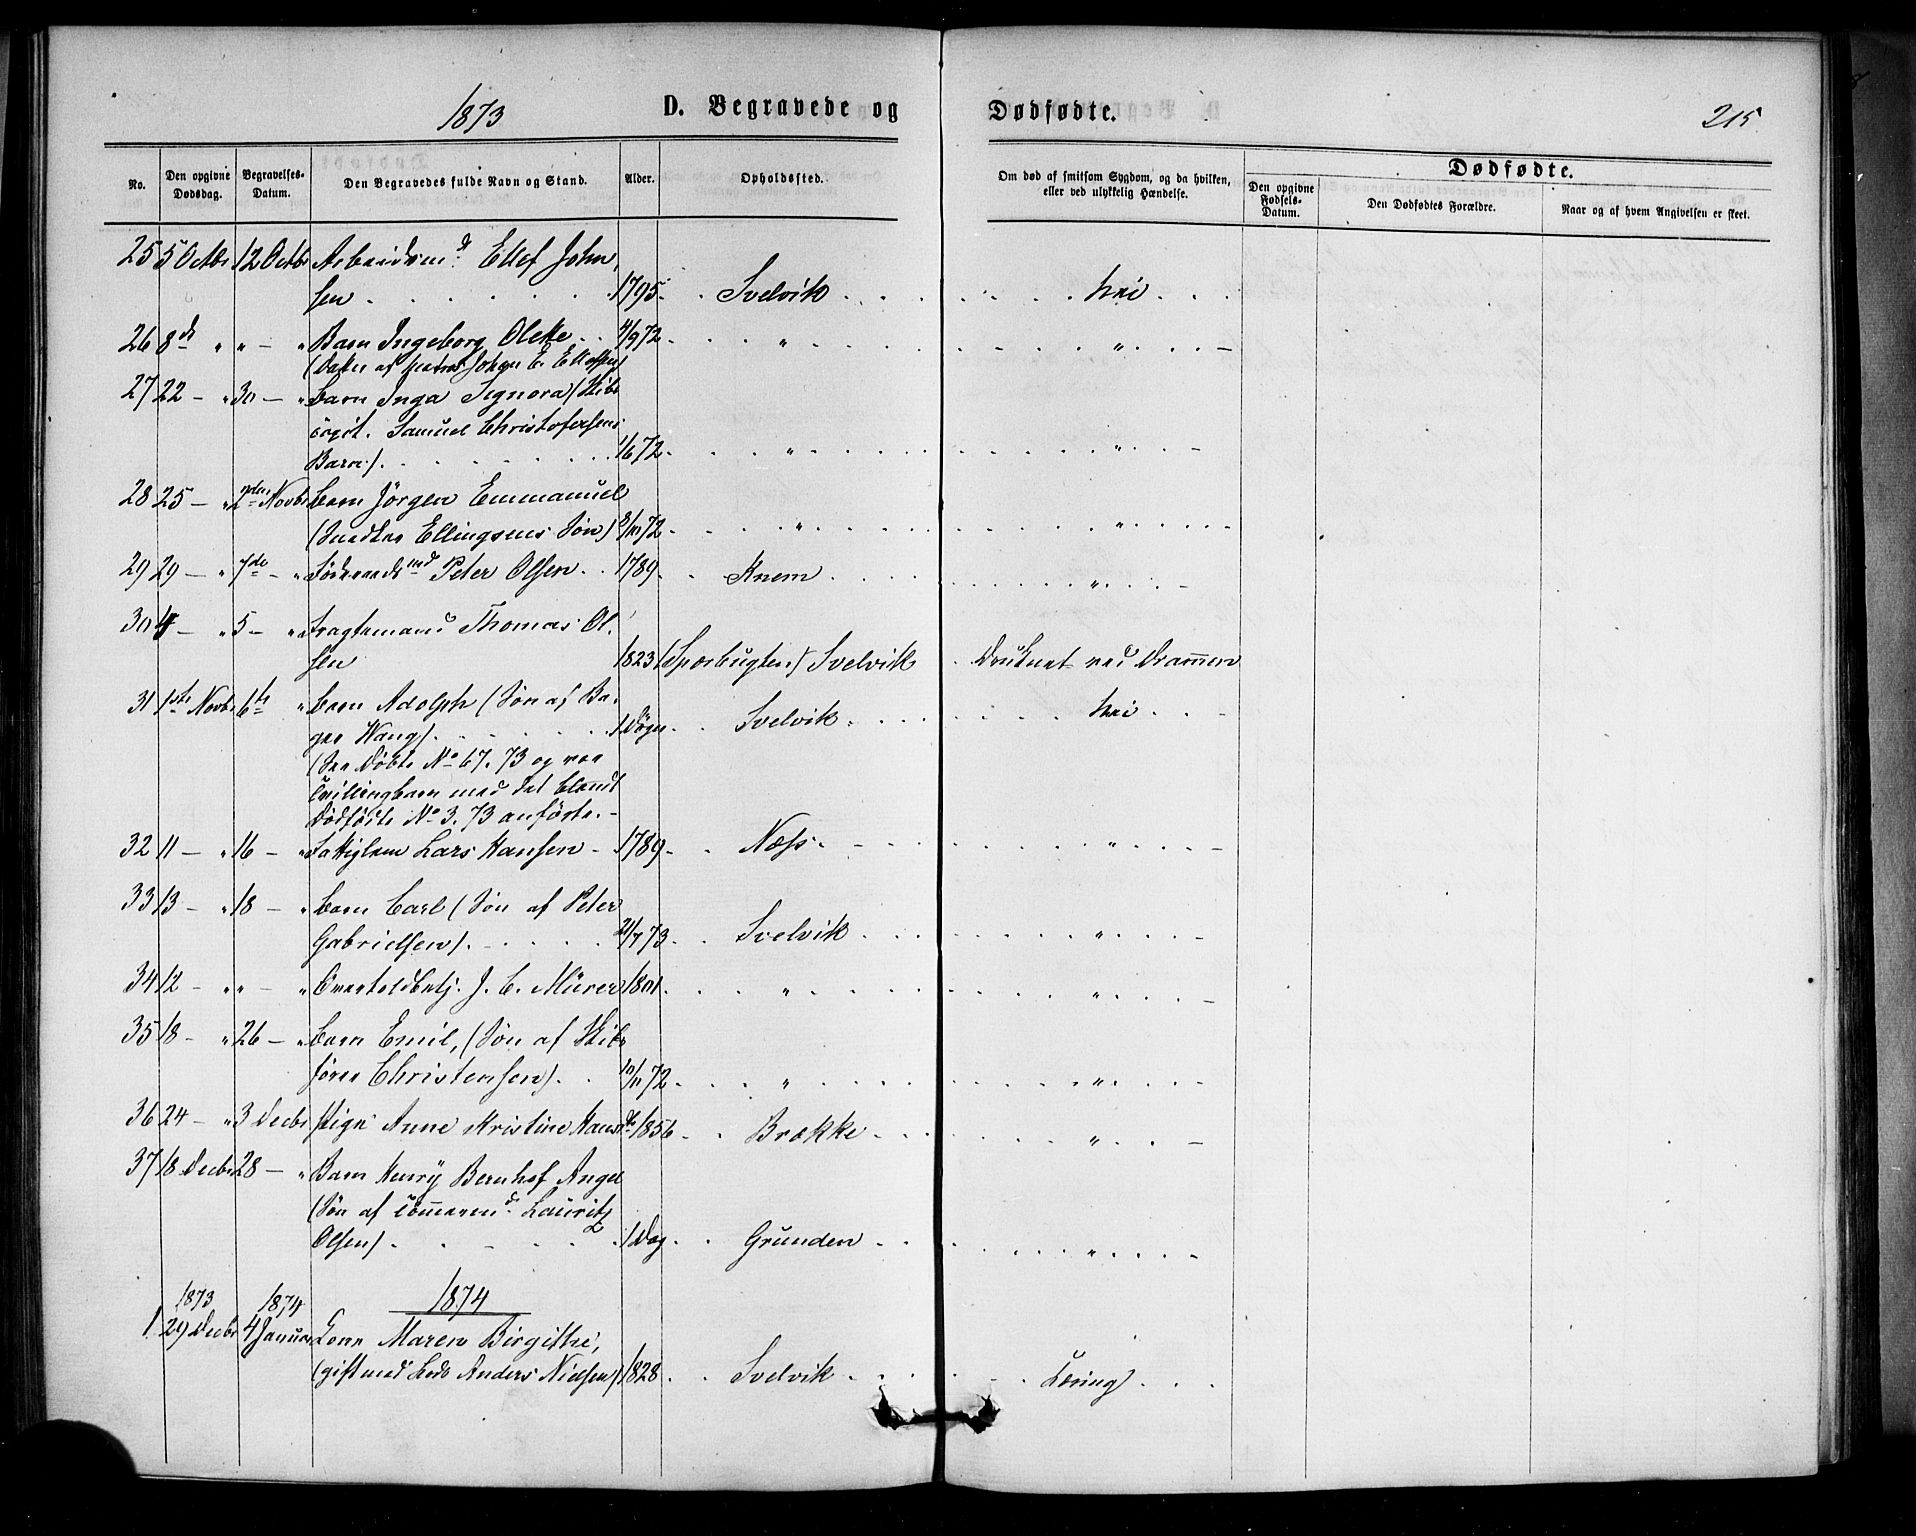 1873 D. Begravede og Dødfødte. 215
No. Den opgivne Dødsdag. Begravelses-Datum. Den Begravedes fulde Navn og Stand. Alder. Opholdssted. Om død af smitsom Sygdom, og da hvilken, eller ved ulykkelig Hændelse. Dødfødte.
Den opgivne Fødsels-Datum. Den Dødfødtes Forældre. Naar og af hvem Angivelsen er skeet.
25 5 Octbr 12 Octbr Arbeidsmd. Ellef John-
sen 1795 Svelvik Nei
26 8de " " - " Barn Ingeborg Olette 4/9 72 " "
(Datter af Johan E. Ellefsen)
27 22 - " 30 - " Barn Inga Signora (Skibs
capit. Samuel Christofersens
Barn) 1/6 72 " "
28 25 - " 2den Novbr Barn Jörgen Emmanuel
(Snedker Ellingsens Søn) 8/10 72 " "
29 29 - " 7de - " Föderaadsmd Peter Olsen 1789 Knem "
30 4 - " 5 - " Fragtemand Thomas Ol-
sen 1823 (Sporbugten) Svelvik Druknet ved Drammen
31 1ste Novbr 6te " Barn Adolph (Søn af Ba-
ger Wang) 1 Døgn Svelvik Nei
(See Döbte No 67. 73 og var
Tvillingbarn med det blandt
Dödfödte No 3. 73 anförte. -
32 11 - " 16 - " Fattiglem Lars Hansen - 1789 Næss "
33 13 - " 18 - " Barn Carl (Søn af Peter
Gabrielsen) 21/7 73 Svelvik "
34 12 - " " - " Overtoldbetj. J. C. Mürer 1801 " "
35 18 - " 26 - " Barn Emil, (Søn af Skibs
förer Christensen) 10/11 72 " "
36 24 - " 3 Decbr Pige Anne Kristine Hansdr 1856 Brække "
37 18 Decbr 28 - " Barn Henrÿ Bernhof Angel
(Søn af Tömmermd. Lauritz
Olsen) 1 Dag Grunden "
1873 1874 1874
1 29 Decbr 4 Januar Kone Maren Birgithe,
(gift med Lods Anders Nielsen) 1828 Svelvik Tæring